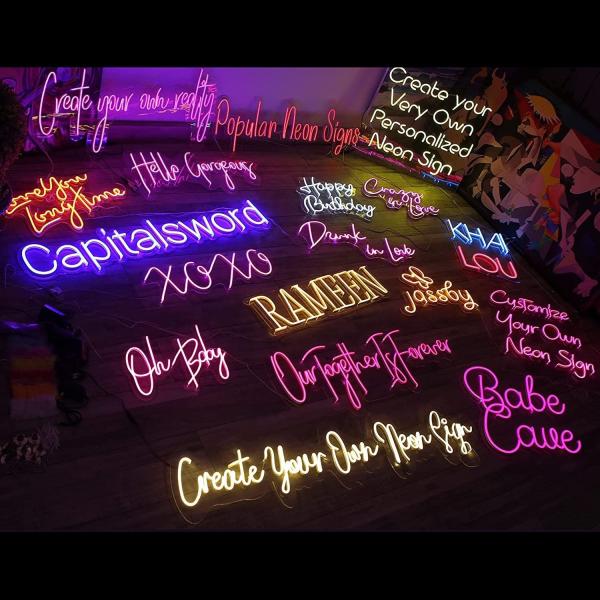 Create your own reality
Popular Neon Signs
Create your
Very Own
Personalized
Neon Sign
Hello Gorgeous
Love You
Long Time
Happy
Birthday
Crazy
in Love
Capitalsword
Drunk in Love
KHAI
LOU
XOXO
RAMEEN
Jassby
Customize
Your Own
Neon Sign
Oh Baby
OurTogetherIsForever
Babe
Cave
Create Your Own Neon Sign